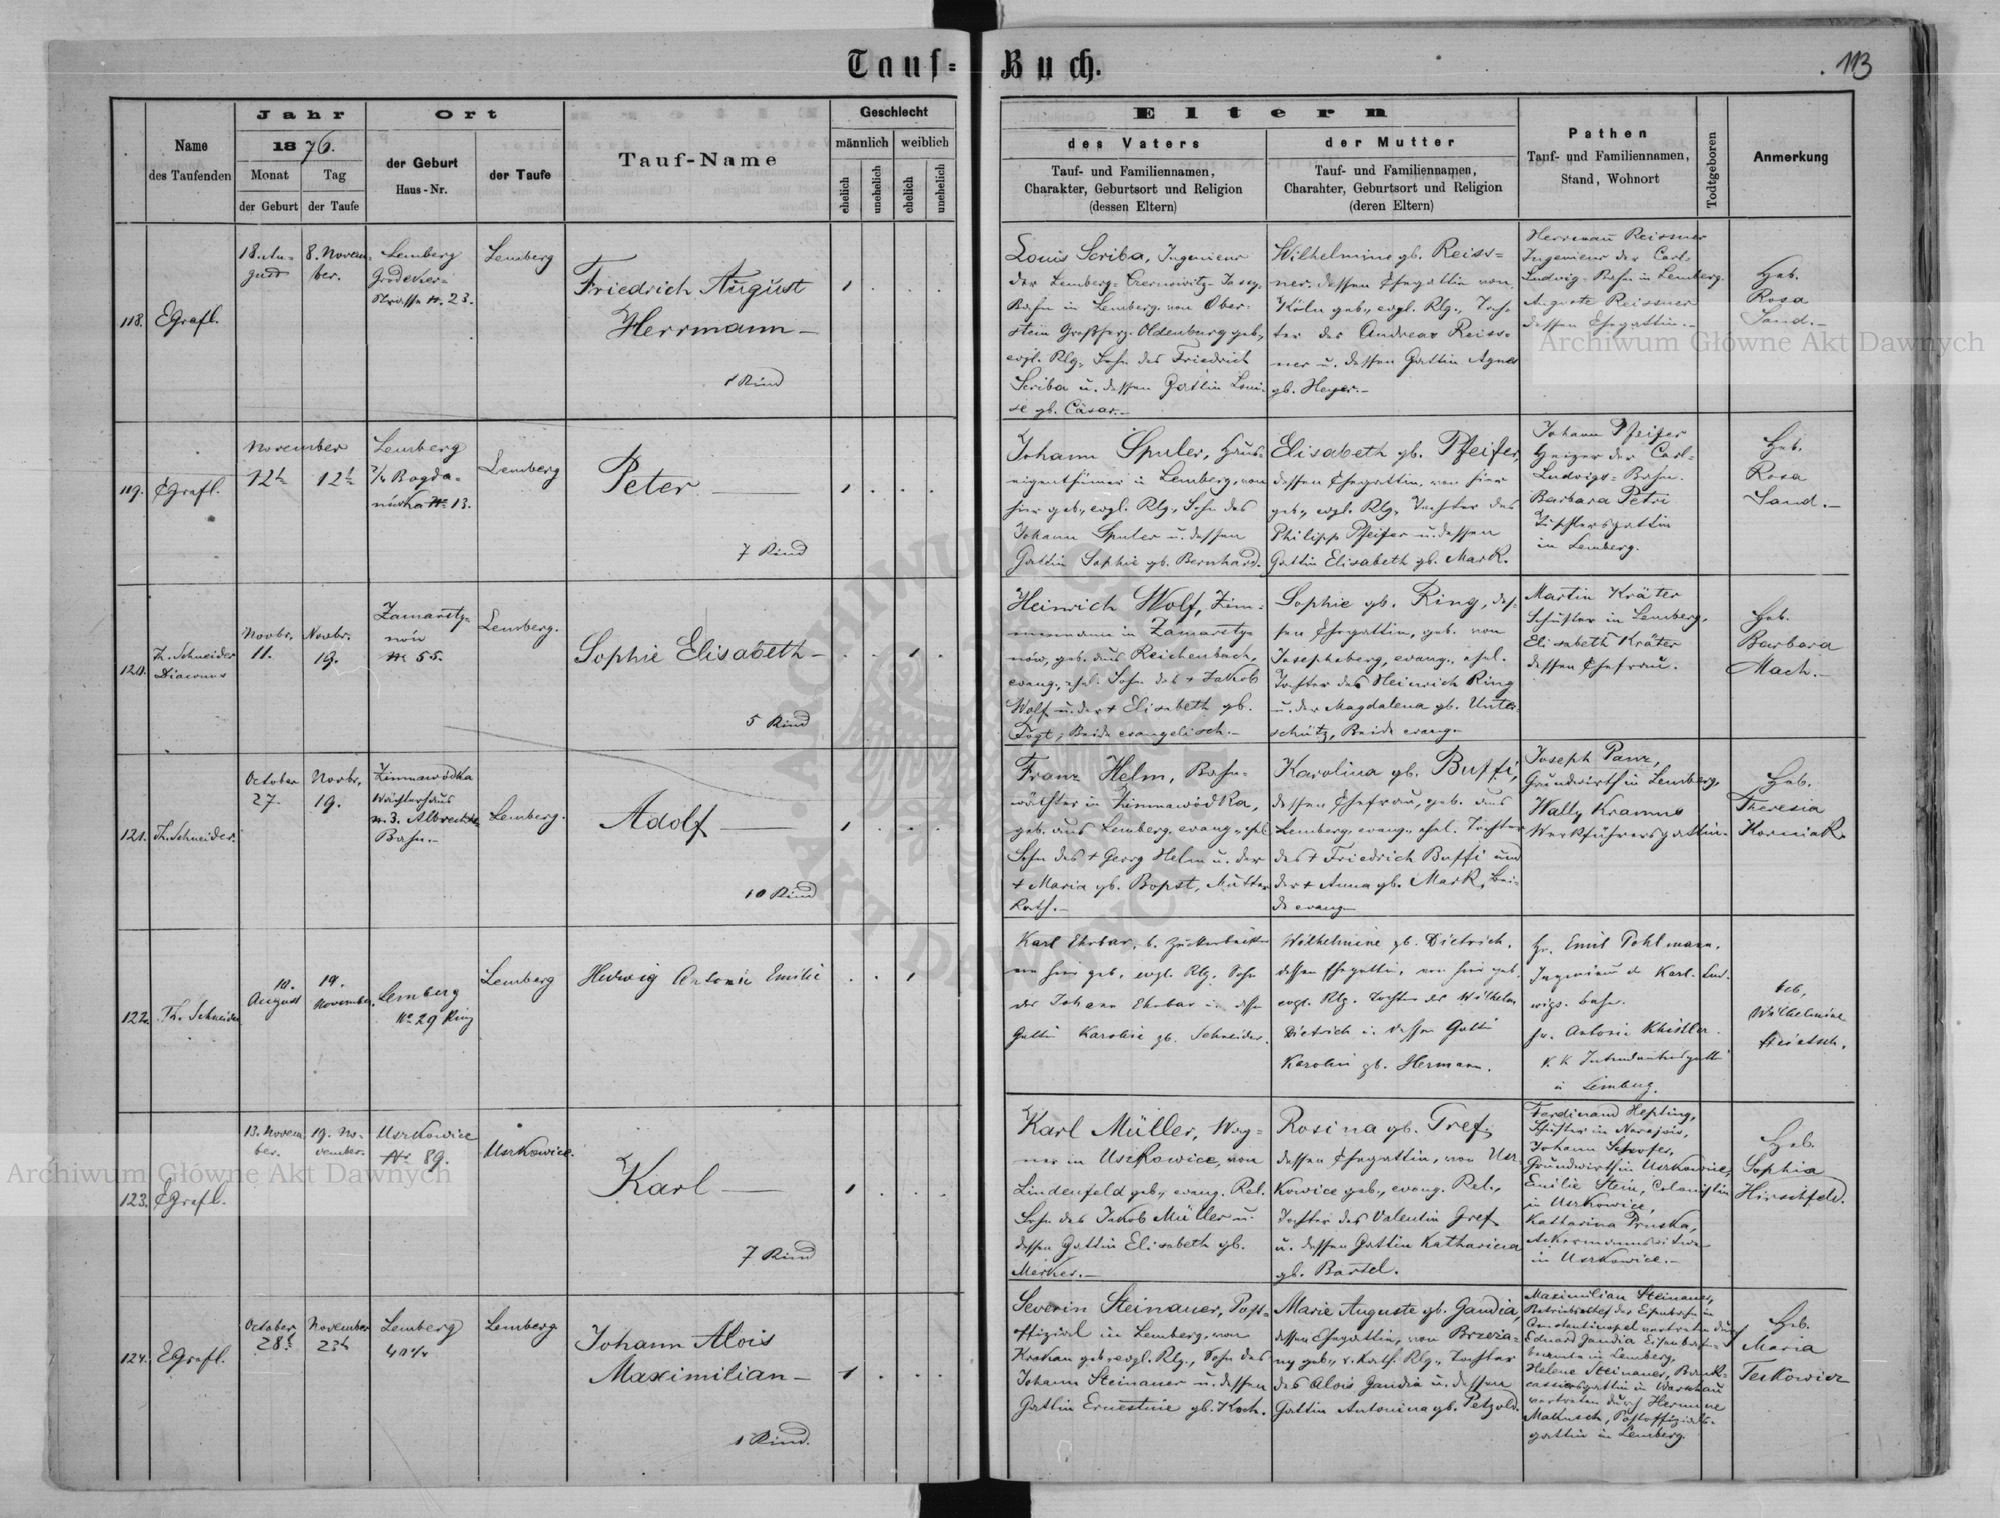 Tauf-Buch.
113
Name
des Taufenden
Jahr
1876.
Monat
Tag
der Geburt
der Taufe
Ort
der Geburt
Haus-Nr.
der Taufe
Tauf-Name
Geschlecht
männlich
weiblich
ehelich
unehelich
ehelich
unehelich
Eltern
des Vaters
Tauf- und Familiennamen,
Charakter, Geburtsort und Religion
(dessen Eltern)
der Mutter
Tauf- und Familiennamen,
Charahter, Geburtsort und Religion
(deren Eltern)
Pathen
Tauf- und Familiennamen,
Stand, Wohnort
Todtgeboren
Anmerkung
118. EGrafl.
18. Au-
gust
8. Novem-
ber.
Lemberg
Grodeker-
Strasse N. 23.
Lemberg
Friedrich August
Herrmann
1 Kind
1
Louis Scriba, Ingenieur
der Lemberg-Czernowitz-Jassy-
Bahn in Lemberg, von Ober-
stein Großherz. Oldenburg geb.,
evgl. Rlg., Sohn des Friedrich
Scriba u. dessen Gattin Loui-
se gb. Cäsar.
Wilhelmine gb. Reiss-
ner, dessen Ehegattin von
Köln geb., evgl. Rlg., Toch-
ter des Andreas Reiss-
ner u. dessen Gattin Agnes
gb. Heyer.
Herrmann Reissner
Ingenieur der Carl-
Ludwig-Bahn in Lemberg.
Auguste Reissner
dessen Ehegattin.
Heb.
Rosa
Sand.
119. EGrafl.
November
12t
12t
Lemberg
Bogda-
nówka N. 13.
Lemberg
Peter
7 Kind
1
Johann Spuler, Haus-
eigenthümer in Lemberg, von
hier geb., evgl. Rlg., Sohn des
Johann Spuler u. dessen
Gattin Sophie gb. Bernhard.
Elisabeth gb. Pfeifer,
dessen Ehegattin, von hier
geb., evgl. Rlg., Tochter des
Philipp Pfeifer u. dessen
Gattin Elisabeth gb. Mark.
Johann Pfeifer
Heizer der Carl-
Ludwigs-Bahn.
Barbara Petri
Tischlersgattin
in Lemberg.
Heb.
Rosa
Sand.
120. Th. Schneider
Diaconus
Novbr.
11.
Novbr.
19.
Zamarsty-
nów
N. 55.
Lemberg.
Sophie Elisabeth
5 Kind
1
Heinrich Wolf, Zim-
mermann in Zamarsty-
nów, geb. aus Reichenbach,
evang., ehel. Sohn des + Jakob
Wolf u. der + Elisabeth gb.
Vogt; Beide evangelisch.
Sophie gb. Ring, des-
sen Ehegattin, geb. von
Josephsberg, evang., ehel.
Tochter des Heinrich Ring
u. der Magdalena gb. Unter-
schütz, Beide evang.
Martin Kräter
Schuster in Lemberg,
Elisabeth Kräter
dessen Ehefrau.
Heb.
Barbara
Mach.
121. Th. Schneider.
October
27.
Novbr.
19.
Zimnawódka
Wächterhaus
N. 3. Albrechts-
Bahn.
Lemberg.
Adolf
10 Kind
1
Franz Helm, Bahn-
wächter in Zimnawódka,
geb. aus Lemberg, evang., ehel.
Sohn des + Georg Helm u. der
+ Maria gb. Bopst, Mutter
kath.
Karolina gb. Buffi,
dessen Ehefrau, geb. aus
Lemberg, evang., ehel. Tochter
des + Friedrich Buffi und
der + Anna gb. Mark, Bei-
de evang.
Joseph Panz,
Grundwirth in Lemberg,
Wally Kramus
Werkführersgattin.
Heb.
Theresia
Korniak.
122. Th. Schneider
10.
August
19.
November.
Lemberg
No 29 Ring
Lemberg
Hedwig Antonie Emilie
1
Karl Ehrbar, b. Zuckerbäcker
von hier geb., evgl. Rlg. Sohn
des Johann Ehrbar u. dessen
Gattin Karolin gb. Schneider.
Wilhelmine gb. Dietrich,
dessen Ehegattin, von hier geb.
evgl. Rlg. Tochter des Wilhelm
Dietrich u. dessen Gattin
Karolin gb. Hermann.
Hr. Emil Pohlmann,
Ingenieur der Karl-Lud-
wigs-bahn.
Fr. Antonie
k. k.
in Lemberg.
Heb.
Wilhelmine
123. EGrafl.
13. Novem-
ber.
19. No-
vember.
Uszkowice
No 89.
Uszkowice.
Karl
7 Kind
1
Karl Müller, Wag-
ner in Uszkowice, von
Lindenfeld geb., evang. Rel.
Sohn des Jakob Müller u.
dessen Gattin Elisabeth gb.
Merker.
Rosina gb. Gref,
dessen Ehegattin, von Usz-
kowice geb., evang. Rel.,
Tochter des Valentin Gref
u. dessen Gattin Katharina
gb. Bartel.
Ferdinand Hepting,
Schuster in Narajów,
Johann
Grundwirth in Uszkowice,
Emilie Stein, Colonistin
in Uszkowice,
Katharina Pruska,
Ackermannswitwe
in Uszkowice.
Heb.
Sophia
Hirschfeld.
124. EGrafl.
October
28t
November
23t
Lemberg
40 4/4
Lemberg
Johann Alois
Maximilian
1 Kind.
1
Severin Steinauer, Post-
offizial in Lemberg, von
Krakau geb., evgl. Rlg., Sohn des
Johann Steinauer u. dessen
Gattin Ernestine gb. Koch.
Marie Auguste gb. Gandia,
dessen Ehegattin, von Brzeża-
ny geb., r. kath. Rlg., Tochter
des Alois Gandia u. dessen
Gattin Antonina gb. Petzold.
Maximilian Steinauer,
Betriebschef der Eisenbahn in
Constantinopel vertreten durch
Eduard Gandia Eisenbahn-
beamte in Lemberg,
Helene Steinauer, Bank-
cassiersgattin in Warschau
vertreten durch Hermine
Matusch, Postoffizials-
gattin in Lemberg.
Heb.
Maria
Terkowicz
Archiwum Główne Akt Dawnych
Archiwum Główne Akt Dawnych
ARCHIWUM GŁÓWNE
AKT DAWNYCH